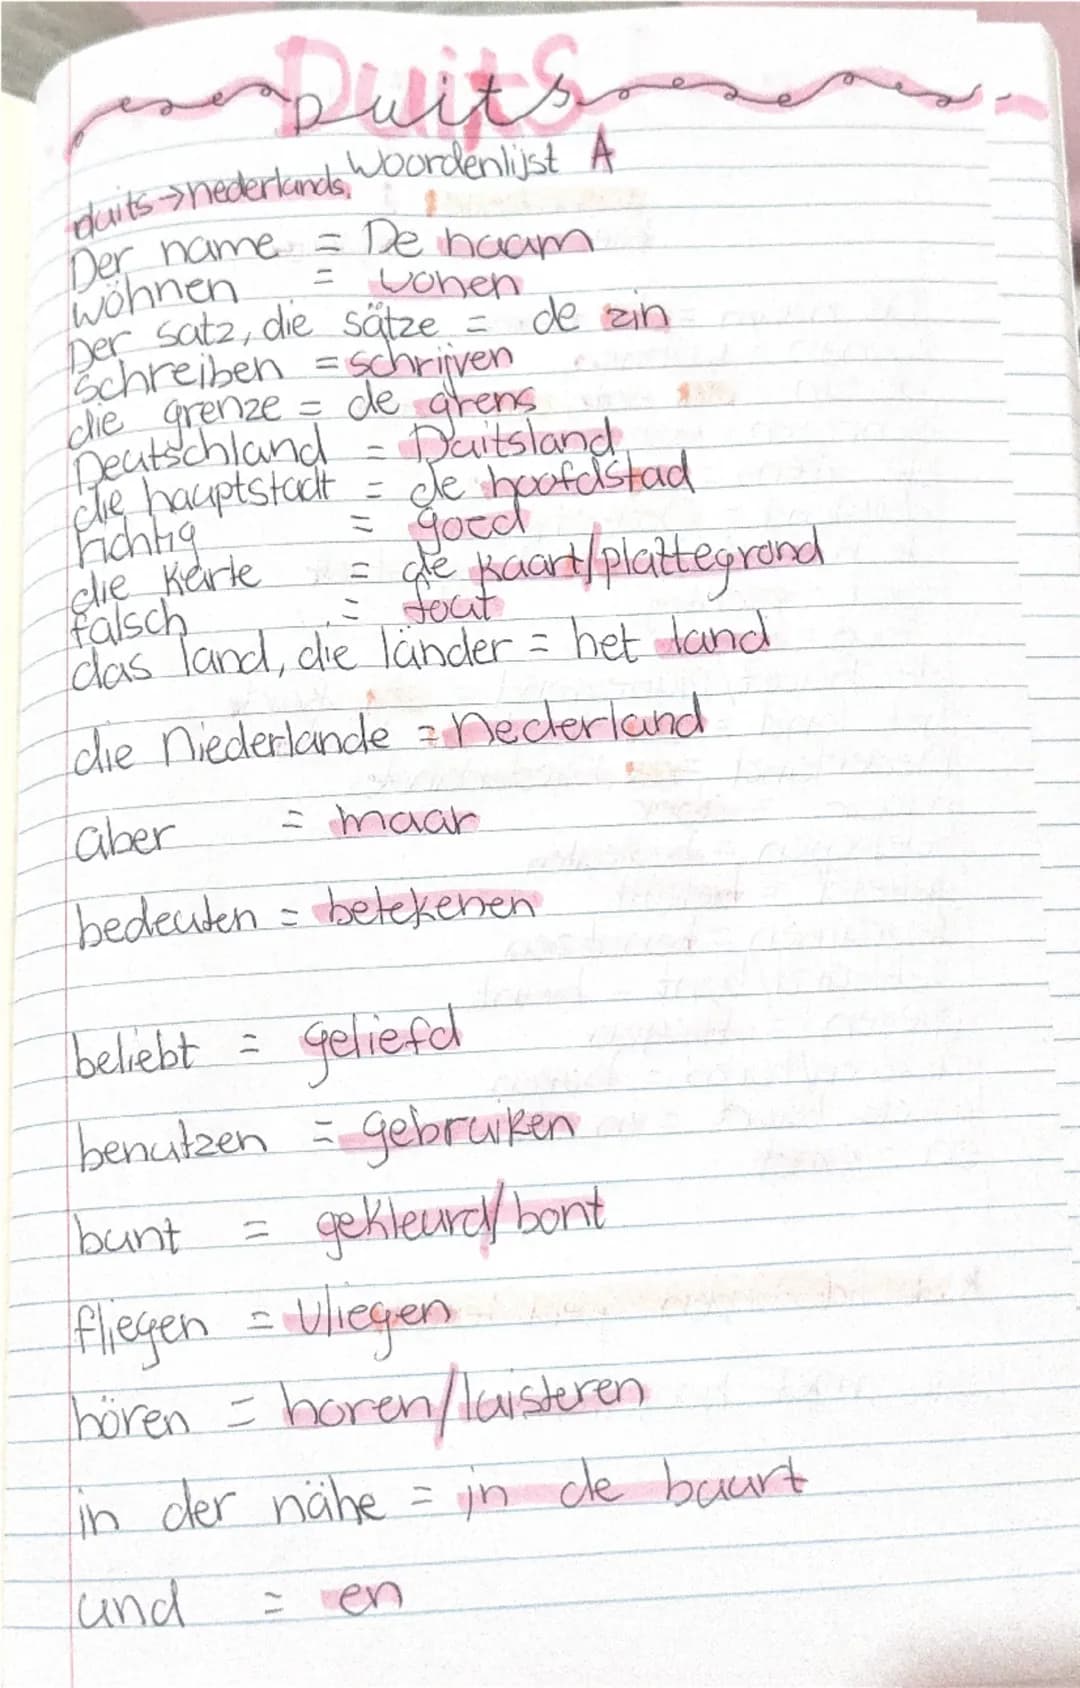 Duits
Duits
Woordenlijst A
duits→nederlands.
Der name = De naam
wöhnen = wonen
Der satz, die sätze = de zin
Schreiben = schrijven
die grenze = de grens
Deutschland = Duitsland
die hauptstadt = de hoofdstad
richtig = goed
die Karte = de kaart/plattegrond
falsch = fout
das land, die länder = het land
die Niederlande = Nederland
aber = maar
bedeuten = betekenen
beliebt = geliefd
benutzen = gebruiken
bunt = gekleurd/bont
fliegen = vliegen
hören = horen/luisteren
in der nähe = in de buurt
und = en